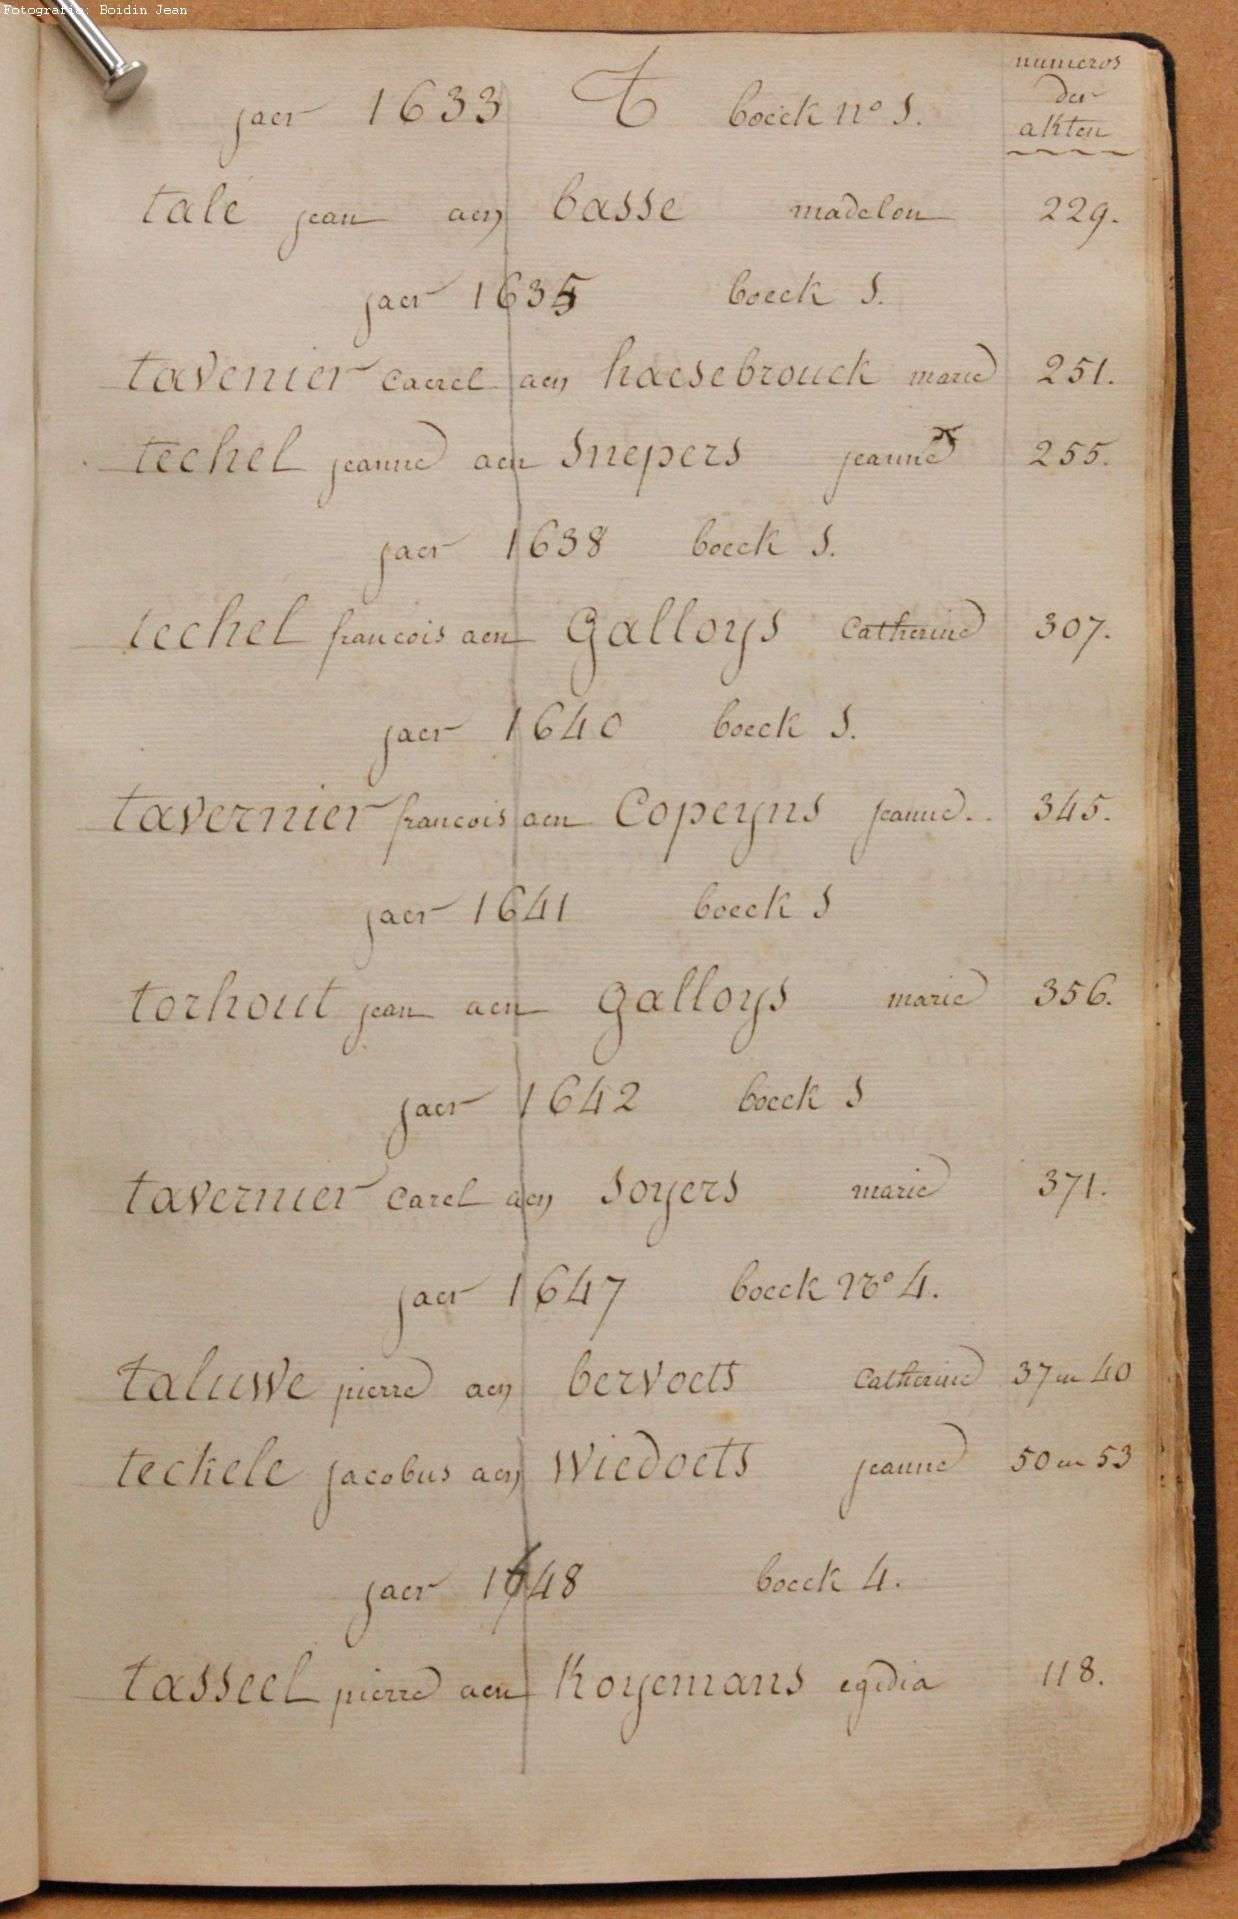 Fotografie: Boidin Jean
numeros
der
akten
jaer 1633 T boeck nº 1.
tale jean aen basse madelon 229.
jaer 1635 boeck 1.
tavenier caerel aen haesebrouck marie 251.
techel jeanne aen snepers jeanne 255.
jaer 1638 boeck 1.
techel francois aen galloys Catherine 307.
jaer 1640 boeck 1.
tavernier francois aen Copeyns jeanne.. 345.
jaer 1641 boeck 1
torhout jean aen galloys marie 356.
jaer 1642 boeck 1
tavernier Carel aen soyers marie 371.
jaer 1647 boeck Nº 4.
taluwe pierre aen bervoets Catherine 37 en 40
teckele jacobus aen wiedoets jeanne 50 en 53
jaer 1648 boeck 4.
tasseel pierre aen Koyemans egidia 118.